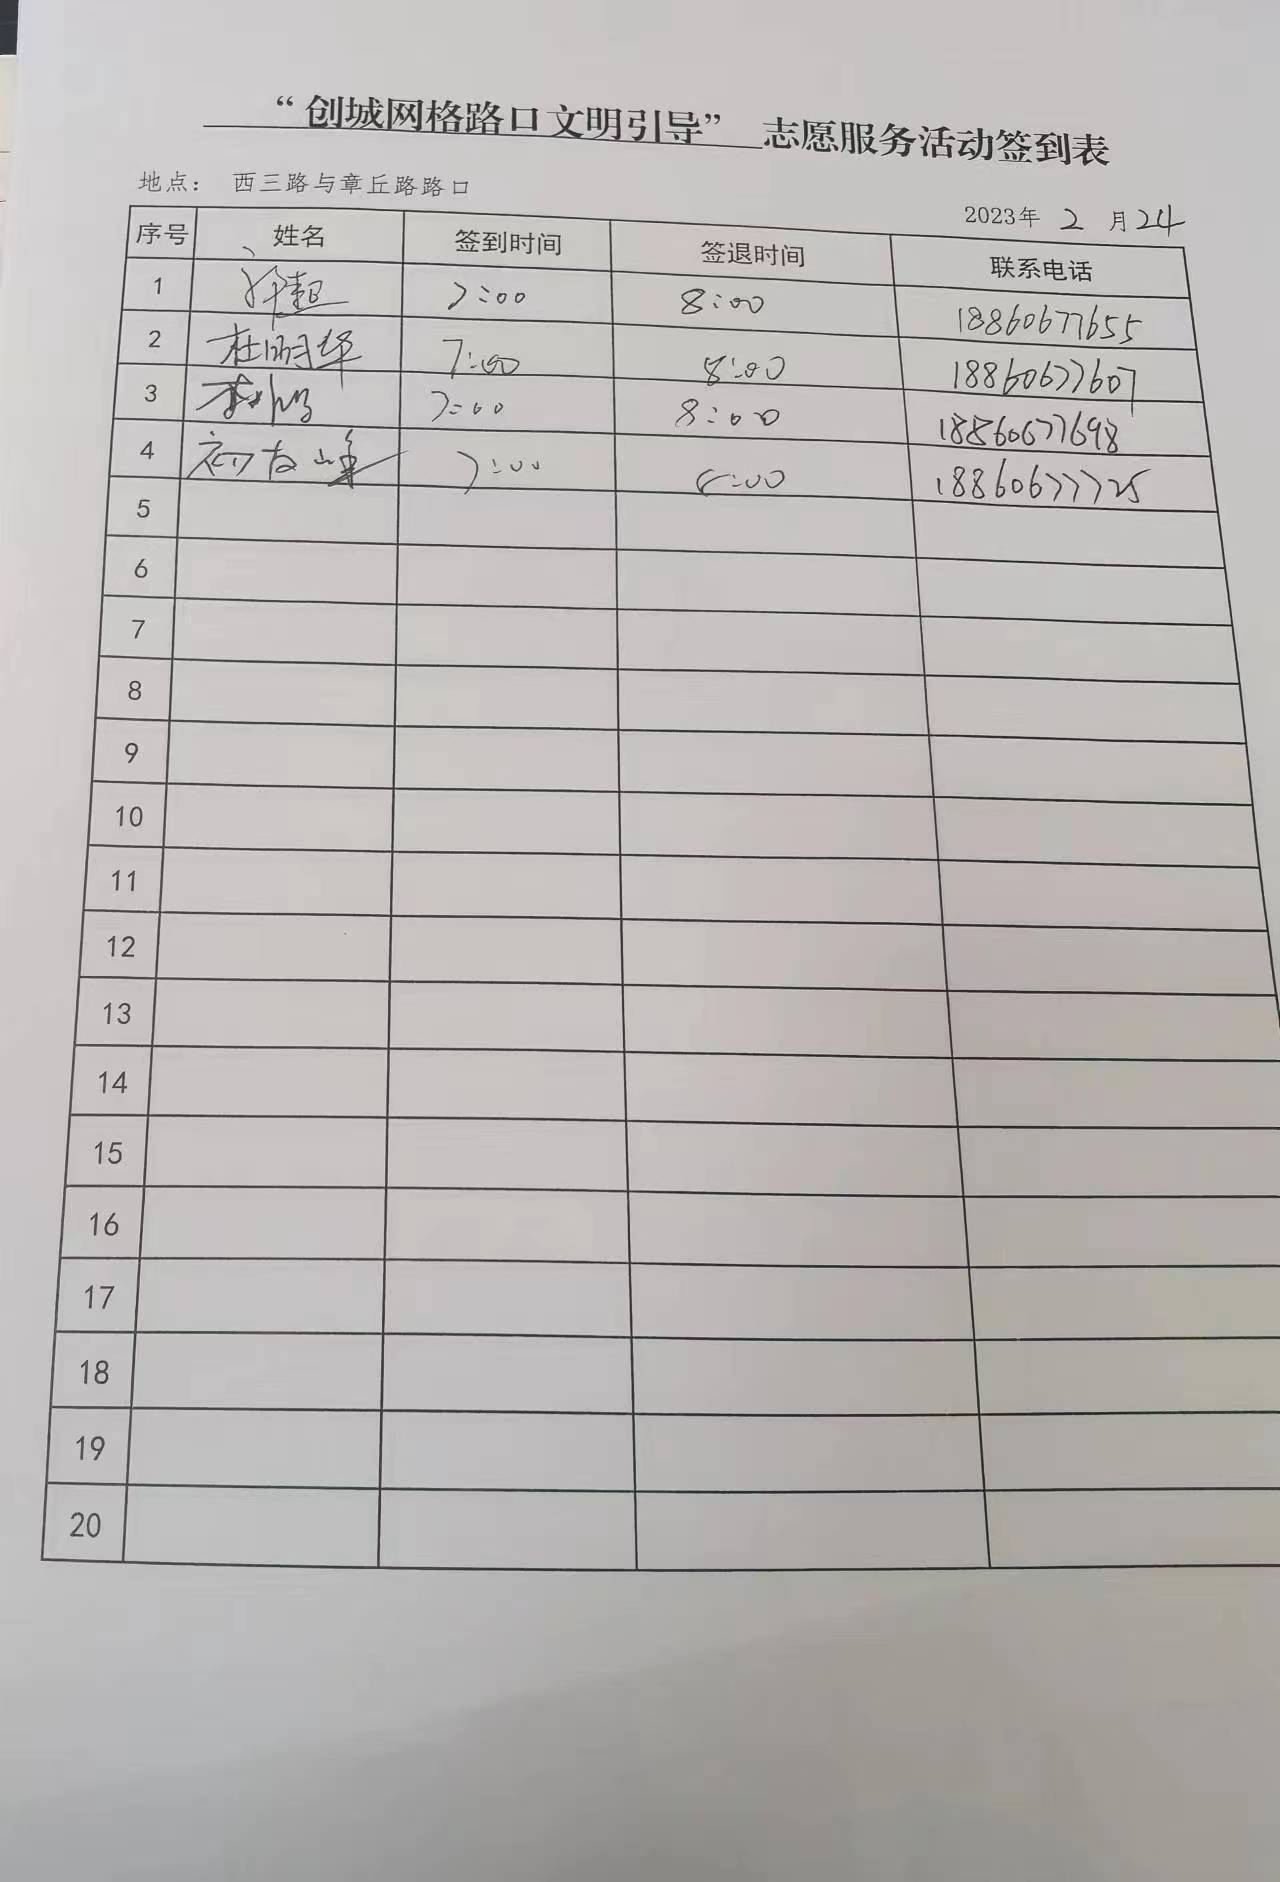 “创城网格路口文明引导” 志愿服务活动签到表
地点： 西三路与章丘路路口
2023年 2 月 24
序号 姓名 签到时间 签退时间 联系电话
1 7:00 8:00 18860677655
2 杜明华 7:00 8:00 18860677607
3 7:00 8:00 18860677698
4 初友峰 7:00 8:00 18860677725
5
6
7
8
9
10
11
12
13
14
15
16
17
18
19
20